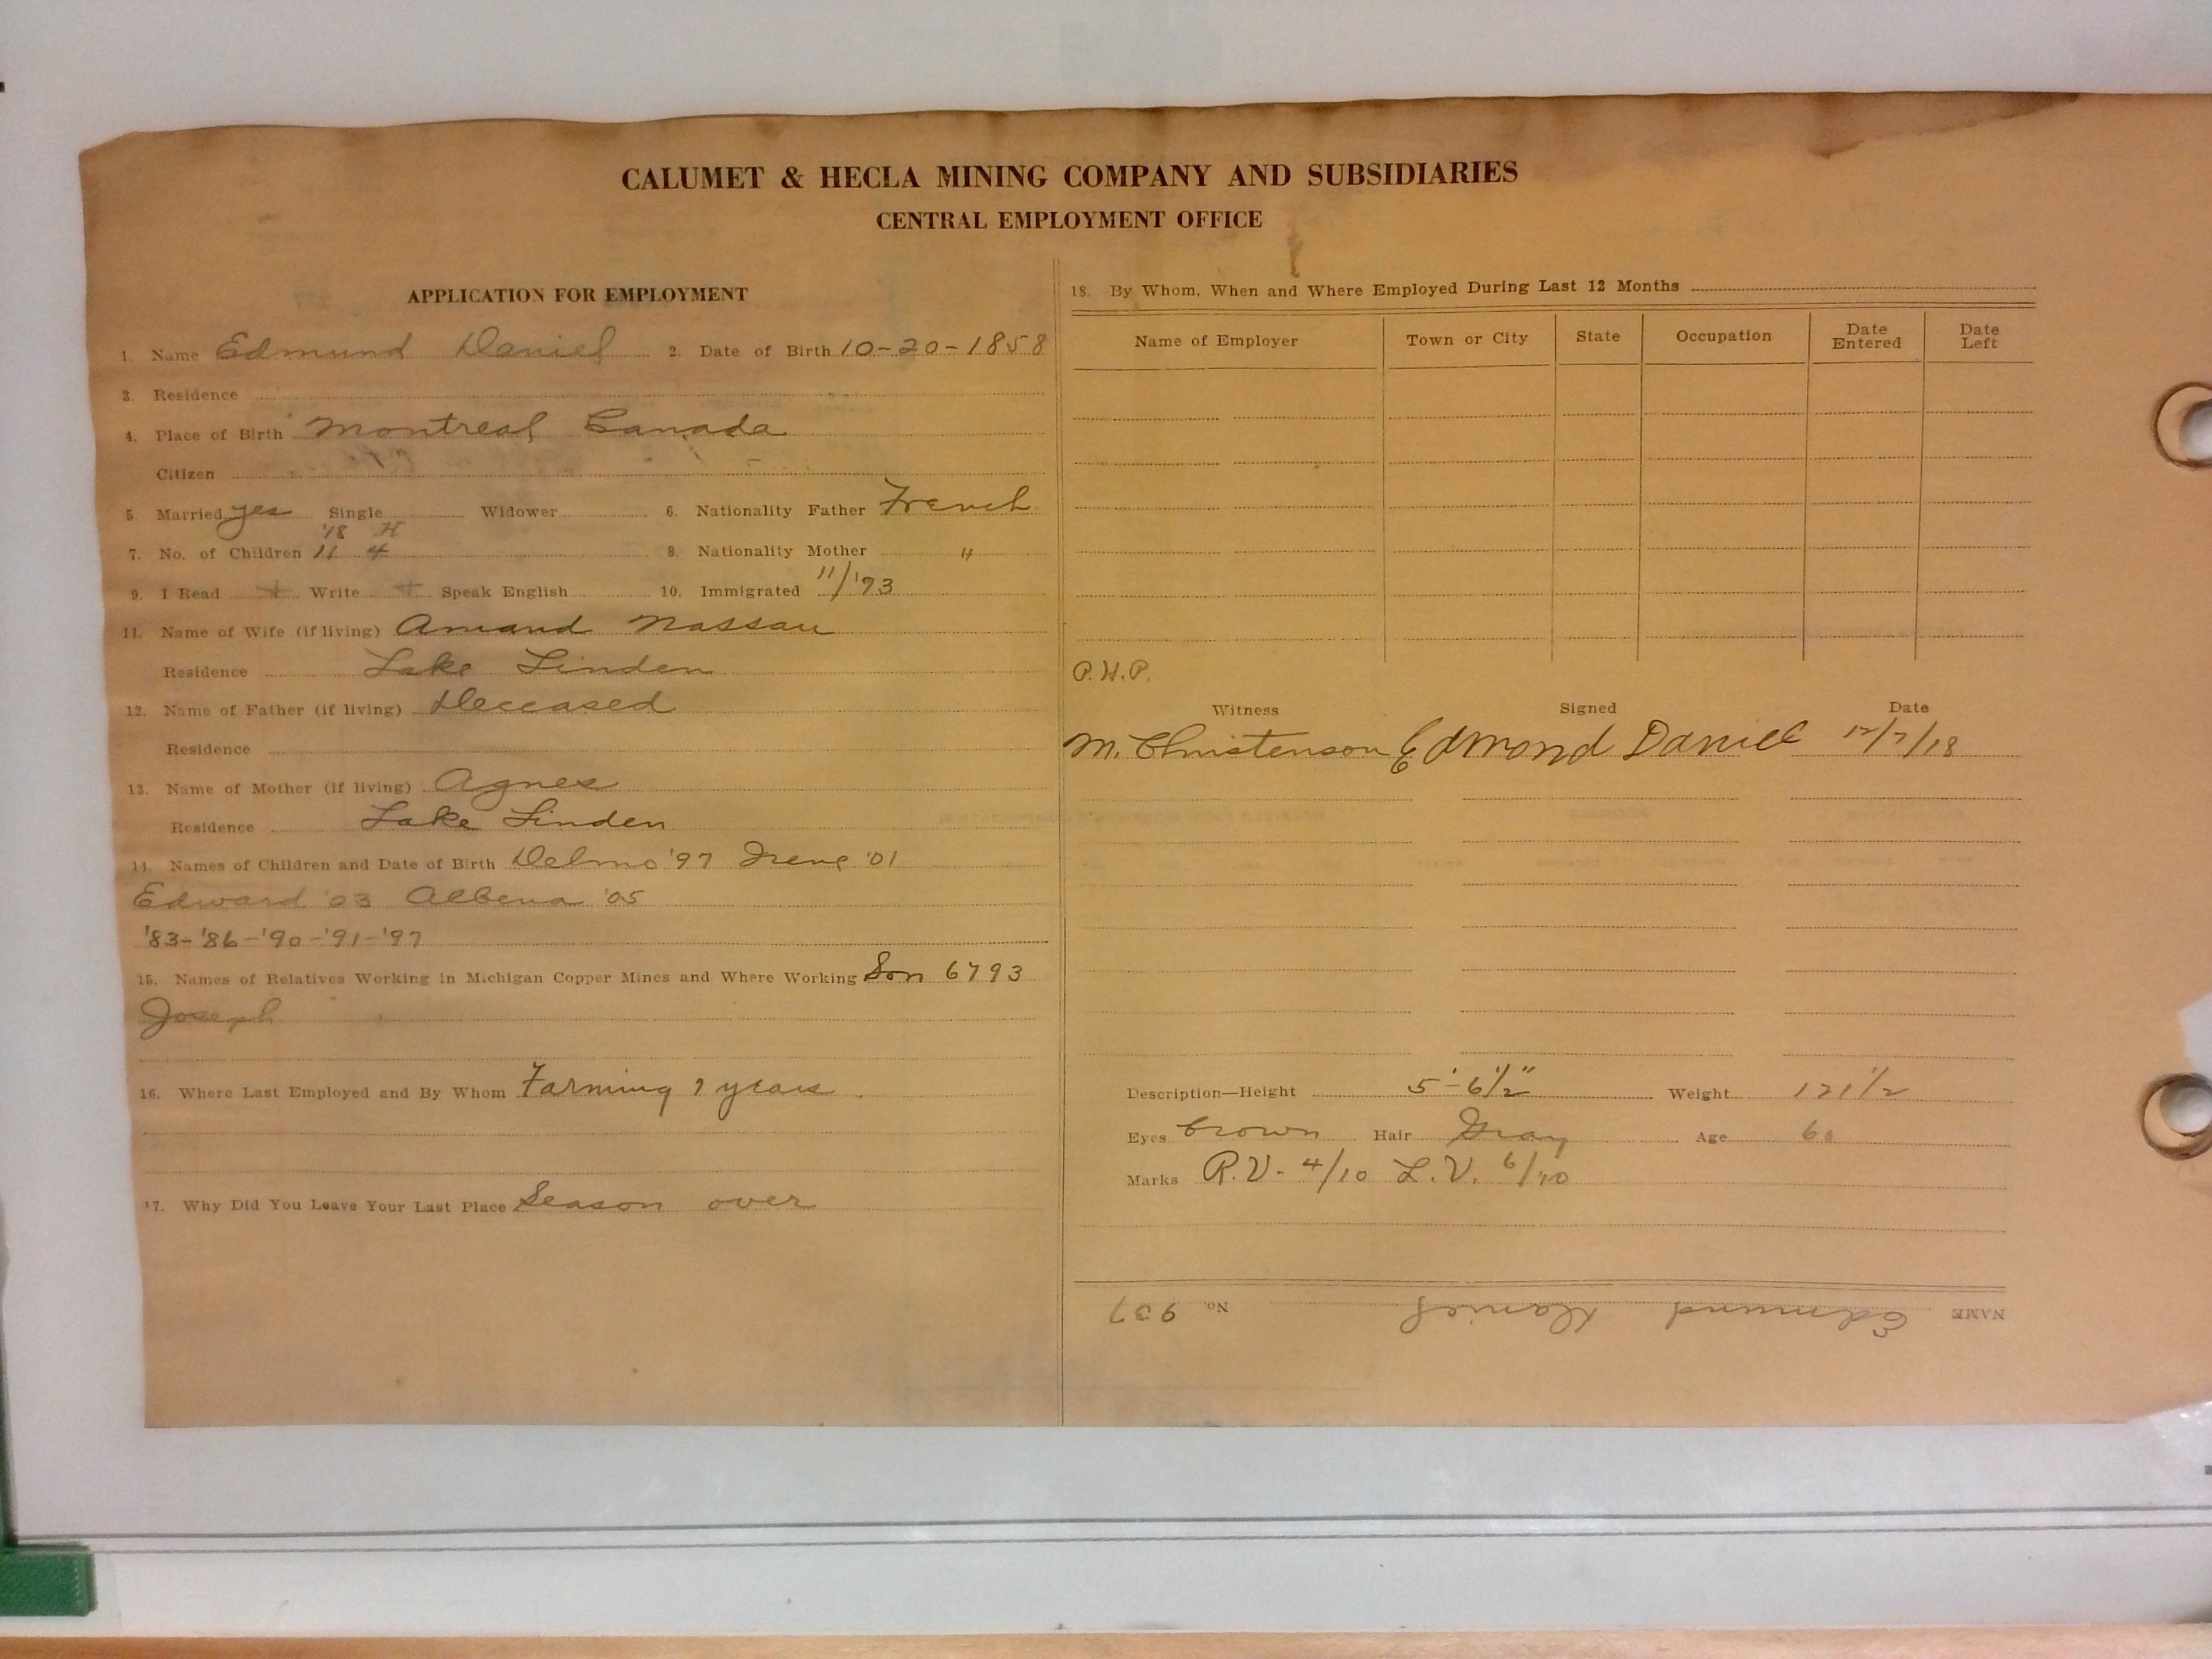 CALUMET & HECLA MINING COMPANY AND SUBSIDIARIES
CENTRAL EMPLOYMENT OFFICE
APPLICATION FOR EMPLOYMENT
1. Name Edmund Daniel 2. Date of Birth 10-20-1858
3. Residence
4. Place of Birth Montreal Canada
Citizen
5. Married yes Single Widower 6. Nationality Father French
'18 H
7. No. of Children 11 4 8. Nationality Mother "
9. I Read + Write + Speak English 10. Immigrated 11/'73
11. Name of Wife (if living) Amand Nassau
Residence Lake Linden
12. Name of Father (if living) Deceased
Residence
13. Name of Mother (if living) Agnes
Residence Lake Linden
14. Names of Children and Date of Birth Delmo '97 Irene '01
Edward '03 Albena '05
'83-'86-'90-'91-'97
15. Names of Relatives Working in Michigan Copper Mines and Where Working Son 6793
Joseph
16. Where Last Employed and By Whom Farming 7 years
17. Why Did You Leave Your Last Place Season over
18. By Whom, When and Where Employed During Last 12 Months
Name of Employer Town or City State Occupation Date Entered Date Left
P.H.P.
Witness Signed Date
M. Christenson Edmond Daniel 12/7/18
Description—Height 5'-6 1/2" Weight 121 1/2
Eyes Brown Hair Gray Age 60
Marks R.V. - 4/10 L.V. 6/10
NAME Edmund Daniel No. 937